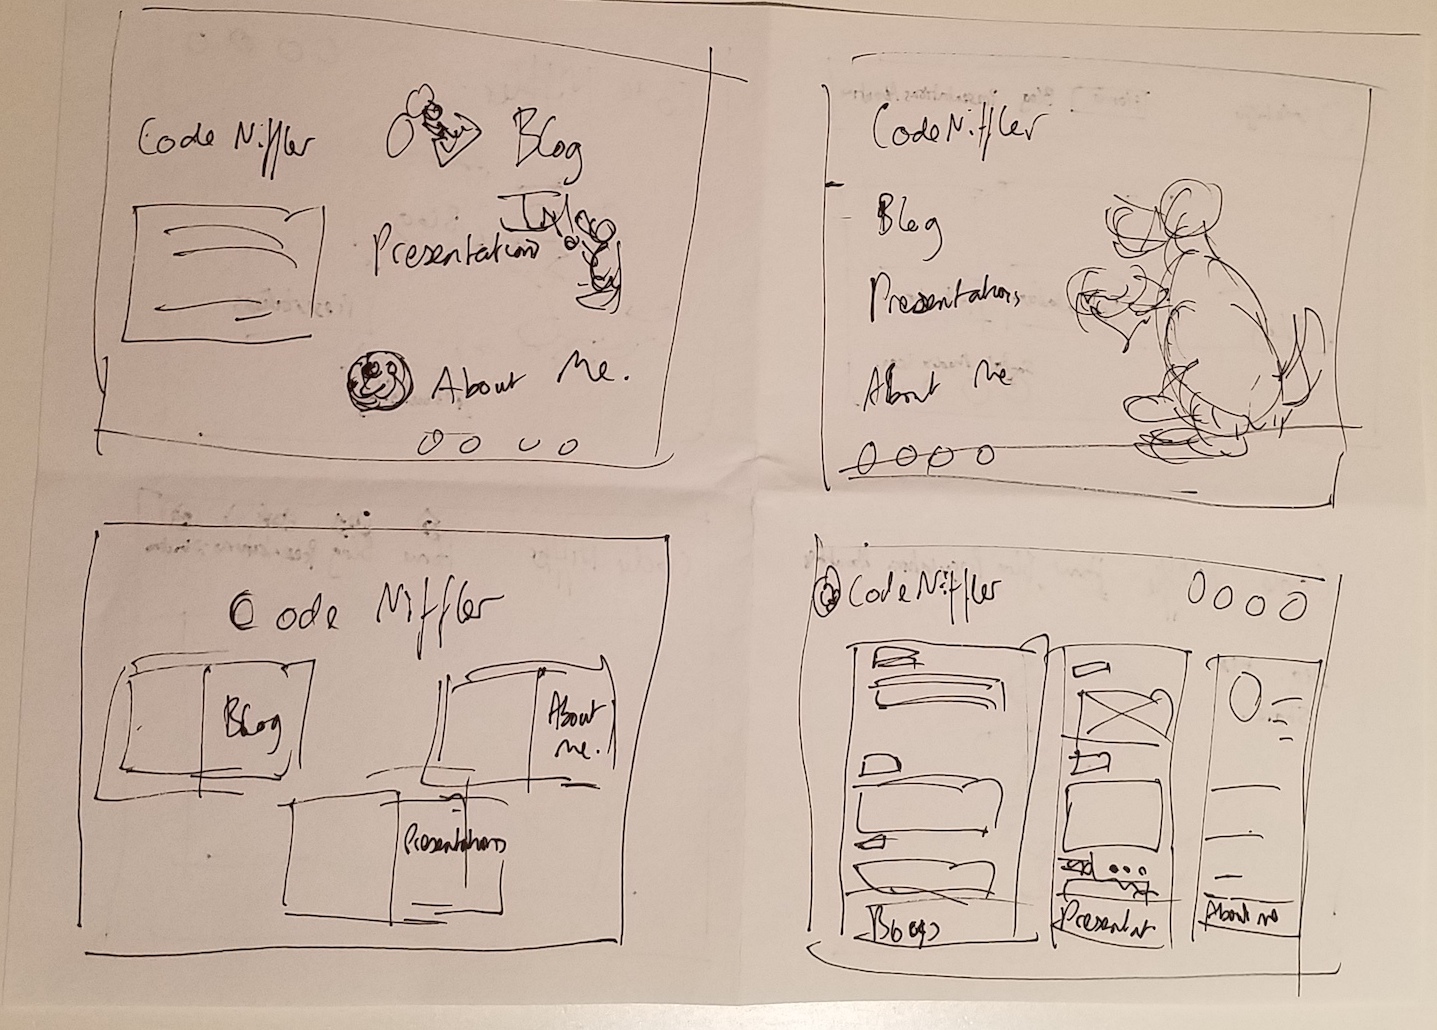 Code Niffler
Blog
Presentations
About Me.
CodeNiffler
Blog
Presentations
About Me
Code Niffler
Blog
About
me.
Presentations
CodeNiffler
Blogs
Present
About me